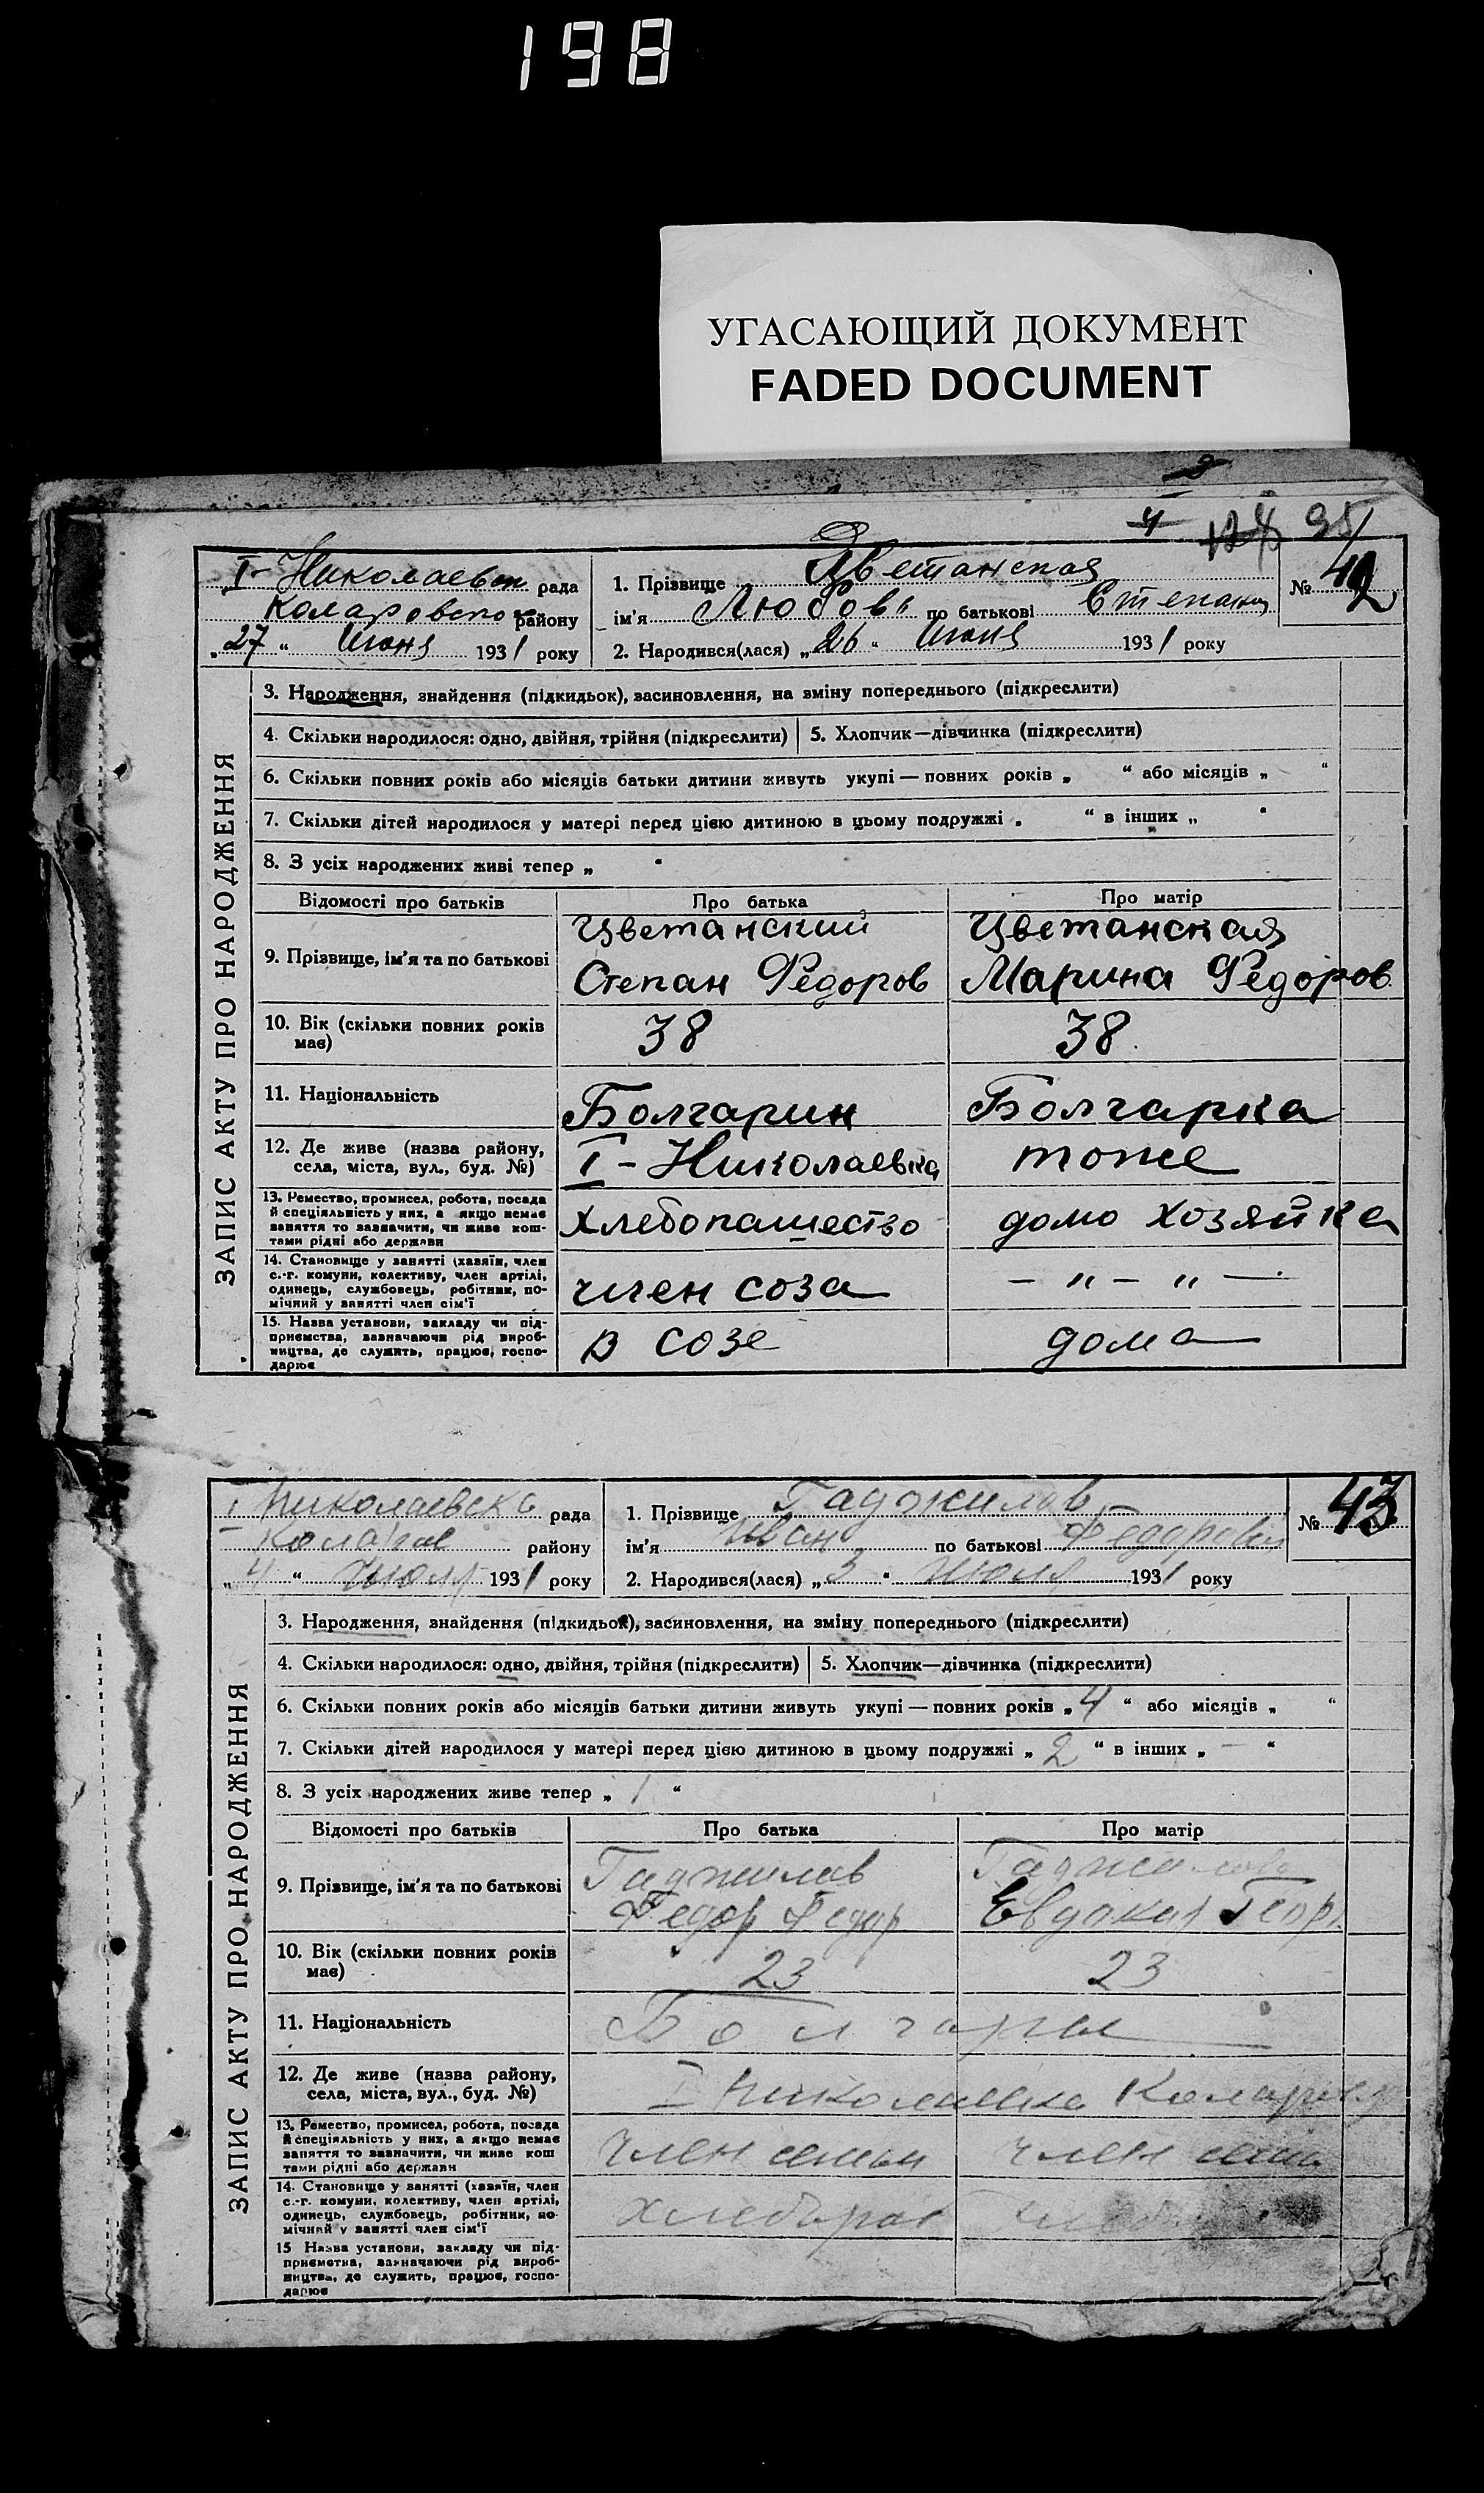 198
УГАСАЮЩИЙ ДОКУМЕНТ
FADED DOCUMENT
4 124 95
I-Николаевск рада
Коларовского району
„27“ Июня 1931 року
1. Прізвище Цветанская
ім'я Любовь по батькові Степанов
2. Народився(лася) „26“ Июня 1931 року
№ 42
ЗАПИС АКТУ ПРО НАРОДЖЕННЯ
3. Народження, знайдення (підкидьок), засиновлення, на зміну попереднього (підкреслити)
4. Скільки народилося: одно, двійня, трійня (підкреслити) 5. Хлопчик—дівчинка (підкреслити)
6. Скільки повних років або місяців батьки дитини живуть укупі — повних років „ “ або місяців „ “
7. Скільки дітей народилося у матері перед цією дитиною в цьому подружжі „ “ в інших „ “
8. З усіх народжених живі тепер „ “
Відомості про батьків Про батька Про матір
9. Прізвище, ім'я та по батькові
Цветанский Цветанская
Степан Федоров Марина Федоров
10. Вік (скільки повних років
має)
38 38
11. Національність Болгарин Болгарка
12. Де живе (назва району,
села, міста, вул., буд. №)
I-Николаевка тоже
13. Ремество, промисел, робота, посада
й спеціяльність у них, а якщо немає
заняття то зазначити, чи живе кош-
тами рідні або держави
Хлебопашество домо хозяйка
14. Становище у занятті (хазяїн, член
с.-г. комуни, колективу, член артілі,
одинець, службовець, робітник, по-
мічний у занятті член сім'ї
член соза — „ — „ —
15. Назва установи, закладу чи під-
приємства, зазначаючи рід вироб-
ництва, де служить, працює, госпо-
дарює
в созе дома
I Николаевска рада
Колар району
„4“ Июля 1931 року
1. Прізвище Гаджилов
ім'я Иван по батькові Федорович
2. Народився(лася) „3“ Июля 1931 року
№ 43
ЗАПИС АКТУ ПРО НАРОДЖЕННЯ
3. Народження, знайдення (підкидьок), засиновлення, на зміну попереднього (підкреслити)
4. Скільки народилося: одно, двійня, трійня (підкреслити) 5. Хлопчик—дівчинка (підкреслити)
6. Скільки повних років або місяців батьки дитини живуть укупі — повних років „4“ або місяців „ “
7. Скільки дітей народилося у матері перед цією дитиною в цьому подружжі „2“ в інших „—“
8. З усіх народжених живе тепер „1“
Відомості про батьків Про батька Про матір
9. Прізвище, ім'я та по батькові
Гаджилов Гаджилова
Федор Федор Евдокия Геор
10. Вік (скільки повних років
має)
23 23
11. Національність Болгары
12. Де живе (назва району,
села, міста, вул., буд. №)
I Николаевка Коларов
13. Ремество, промисел, робота, посада
й спеціяльність у них, а якщо немає
заняття то зазначити, чи живе кош
тами рідні або держави
член семьи член семьи
14. Становище у занятті (хазяїн, член
с.-г. комуни, колективу, член артілі,
одинець, службовець, робітник, по-
мічний у занятті член сім'ї
хлебороб
15 Назва установи, закладу чи під-
приємства, зазначаючи рід вироб-
ництва, де служить, працює, госпо-
дарює